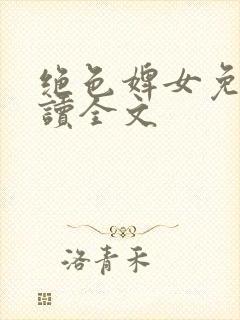 绝色婢女免
讀全文
洛青禾